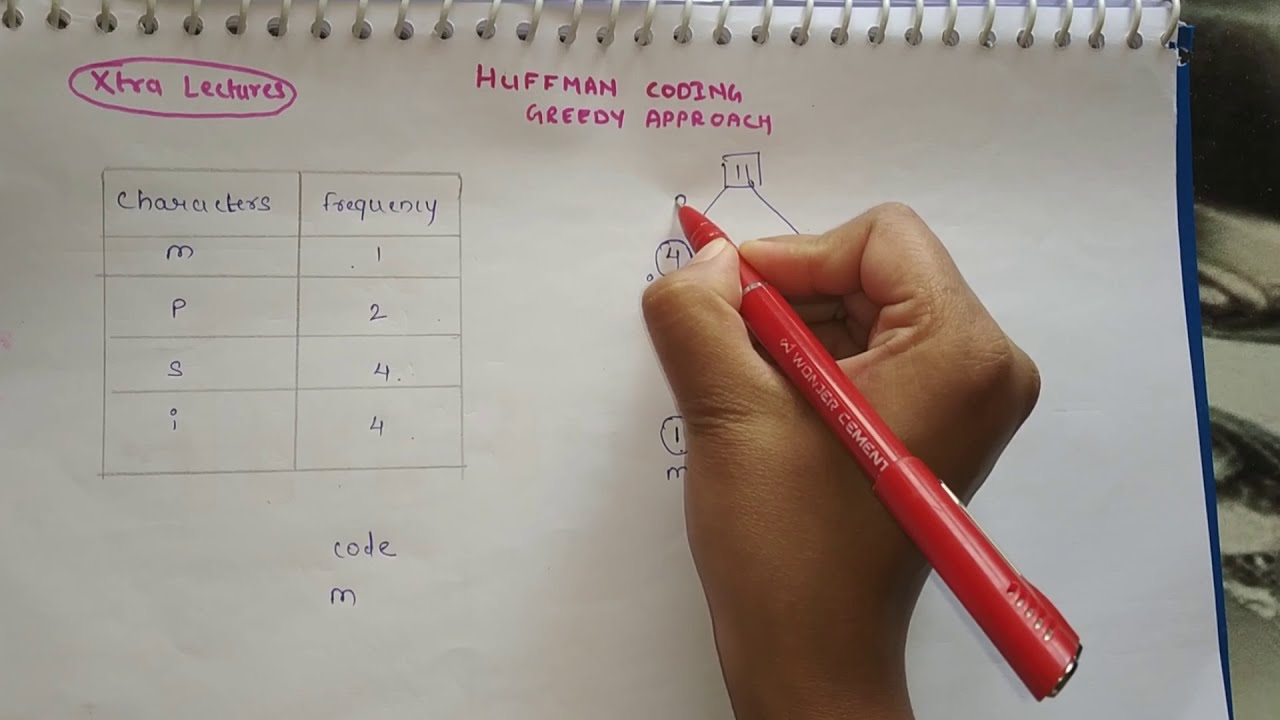 Xtra Lectures
HUFFMAN CODING
GREEDY APPROACH
Characters frequency
m 1
P 2
S 4
i 4
code
m
11
0
4
i
1
m
WONDER CEMENT